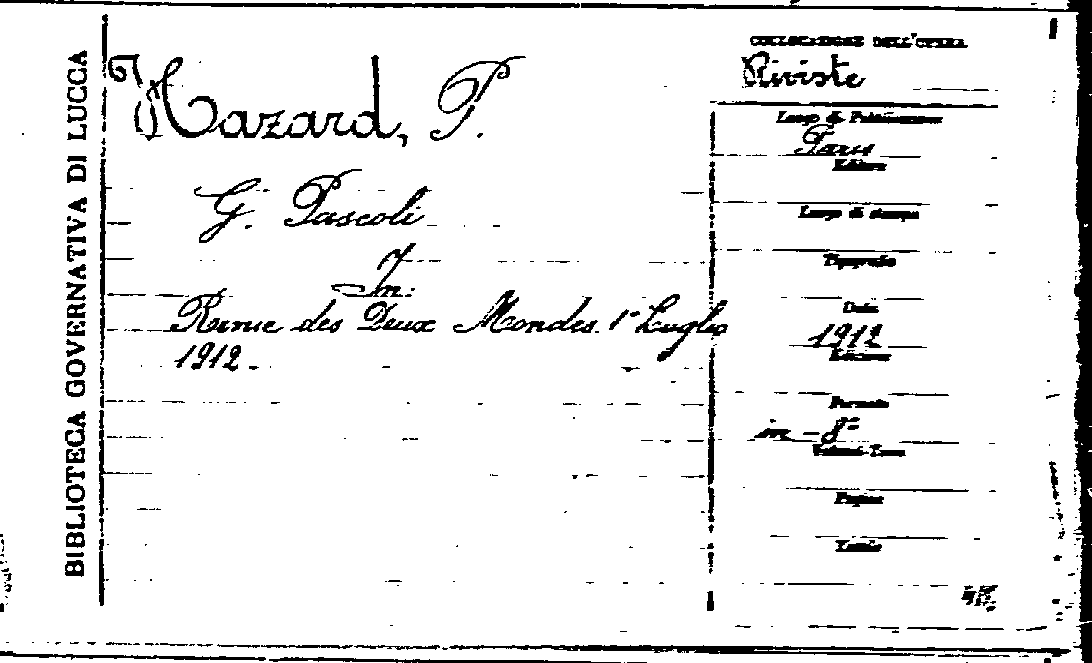 BIBLIOTECA GOVERNATIVA DI LUCCA
Hazard, P.
G. Pascoli
In:
Revue des Deux Mondes. 1° Luglio
1912.
COLLOCAZIONE DELL'OPERA
Riviste
Luogo di Pubblicazione
Paris
Editore
Luogo di stampa
Tipografia
Data
1912
Edizione
Formato
in-8°
Volumi-Tomi
Pagine